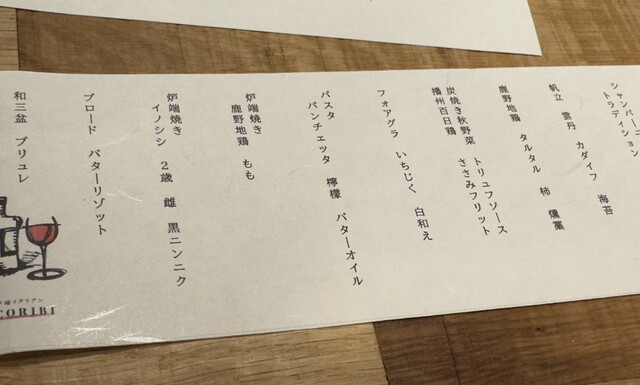 シャンパーニュ
トラディション
帆立 雲丹 カダイフ 海苔
鹿野地鶏 タルタル 柿 燻藁
炭焼き秋野菜 トリュフソース
播州百日鶏 ささみフリット
フォアグラ いちじく 白和え
パスタ
パンチェッタ 檸檬 バターオイル
炉端焼き
鹿野地鶏 もも
炉端焼き
イノシシ 2歳 雌 黒ニンニク
ブロード バターリゾット
和三盆 ブリュレ
イタリアン
CORIBI